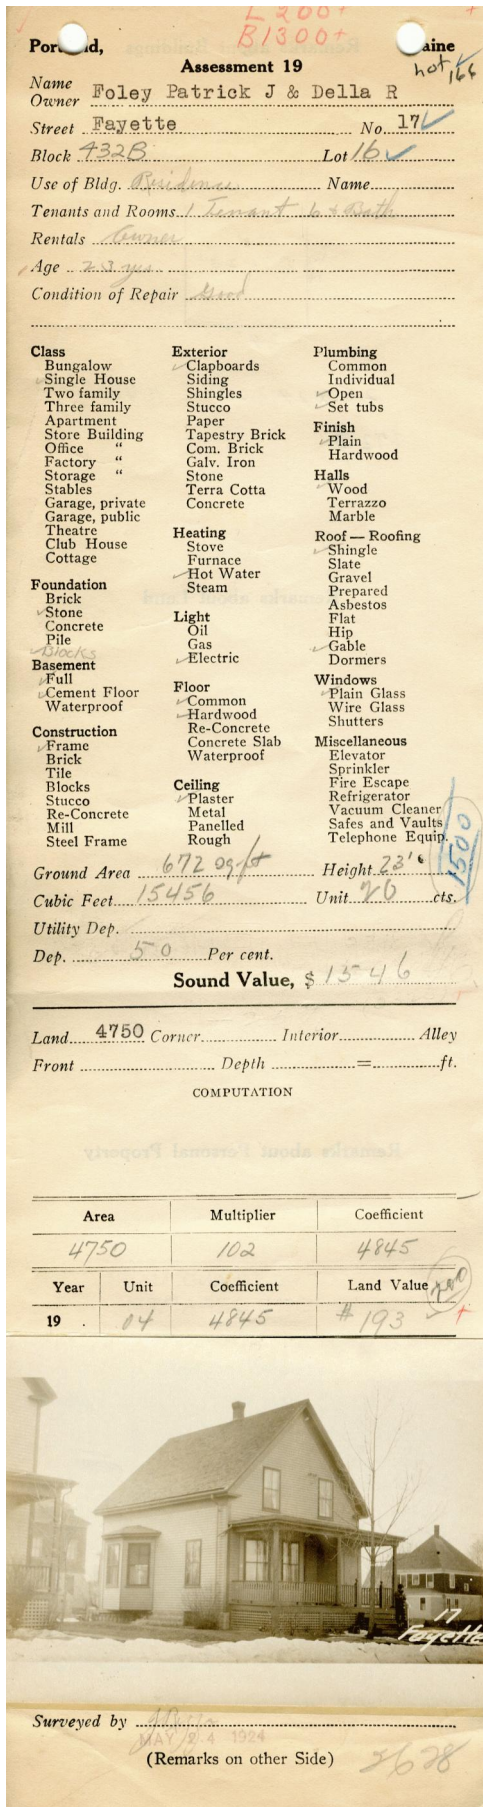 L 200+
B 1300+
Portland, Maine
Assessment 19
not 166
Name Owner Foley Patrick J & Della R
Street Fayette No. 17
Block 432B Lot 16
Use of Bldg. Residence Name
Tenants and Rooms 1 Tenant 6 & Bath
Rentals Owner
Age 23 yrs
Condition of Repair Good
Class
Bungalow
Single House
Two family
Three family
Apartment
Store Building
Office "
Factory "
Storage "
Stables
Garage, private
Garage, public
Theatre
Club House
Cottage
Foundation
Brick
Stone
Concrete
Pile
Blocks
Basement
Full
Cement Floor
Waterproof
Construction
Frame
Brick
Tile
Blocks
Stucco
Re-Concrete
Mill
Steel Frame
Exterior
Clapboards
Siding
Shingles
Stucco
Paper
Tapestry Brick
Com. Brick
Galv. Iron
Stone
Terra Cotta
Concrete
Heating
Stove
Furnace
Hot Water
Steam
Light
Oil
Gas
Electric
Floor
Common
Hardwood
Re-Concrete
Concrete Slab
Waterproof
Ceiling
Plaster
Metal
Panelled
Rough
Plumbing
Common
Individual
Open
Set tubs
Finish
Plain
Hardwood
Halls
Wood
Terrazzo
Marble
Roof — Roofing
Shingle
Slate
Gravel
Prepared
Asbestos
Flat
Hip
Gable
Dormers
Windows
Plain Glass
Wire Glass
Shutters
Miscellaneous
Elevator
Sprinkler
Fire Escape
Refrigerator
Vacuum Cleaner
Safes and Vaults
Telephone Equip.
1500
Ground Area 672 sq ft Height 23'
Cubic Feet 15456 Unit 20 cts.
Utility Dep.
Dep. 50 Per cent.
Sound Value, $ 1546
Land 4750 Corner Interior Alley
Front Depth = ft.
COMPUTATION
Area Multiplier Coefficient
4750 102 4845
Year Unit Coefficient Land Value 200
19 . 04 4845 $193
17
Fayette
Surveyed by
MAY 24 1924
(Remarks on other Side)
2628